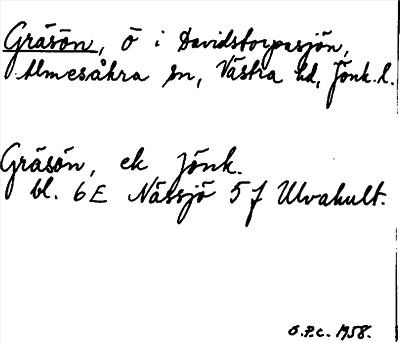 Gräsön, ö i Davidstorpasjön,
Almesåkra sn, Västra hd, Jönk. l.
Gräsön, ek Jönk.
bl. 6E Nässjö 5 f Ulvahult.
O.P.c. 1958.